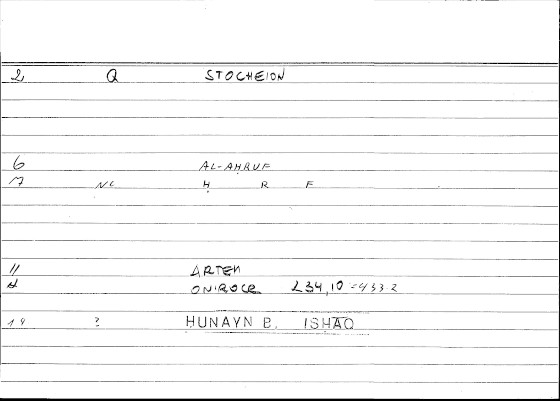 2, Q STOCHEION
6 AL-AḤRUF
7 NC Ḥ R F
11 ARTEM
ONIROCR 234,10 = 433.2
14 ? HUNAYN B. ISḤĀQ